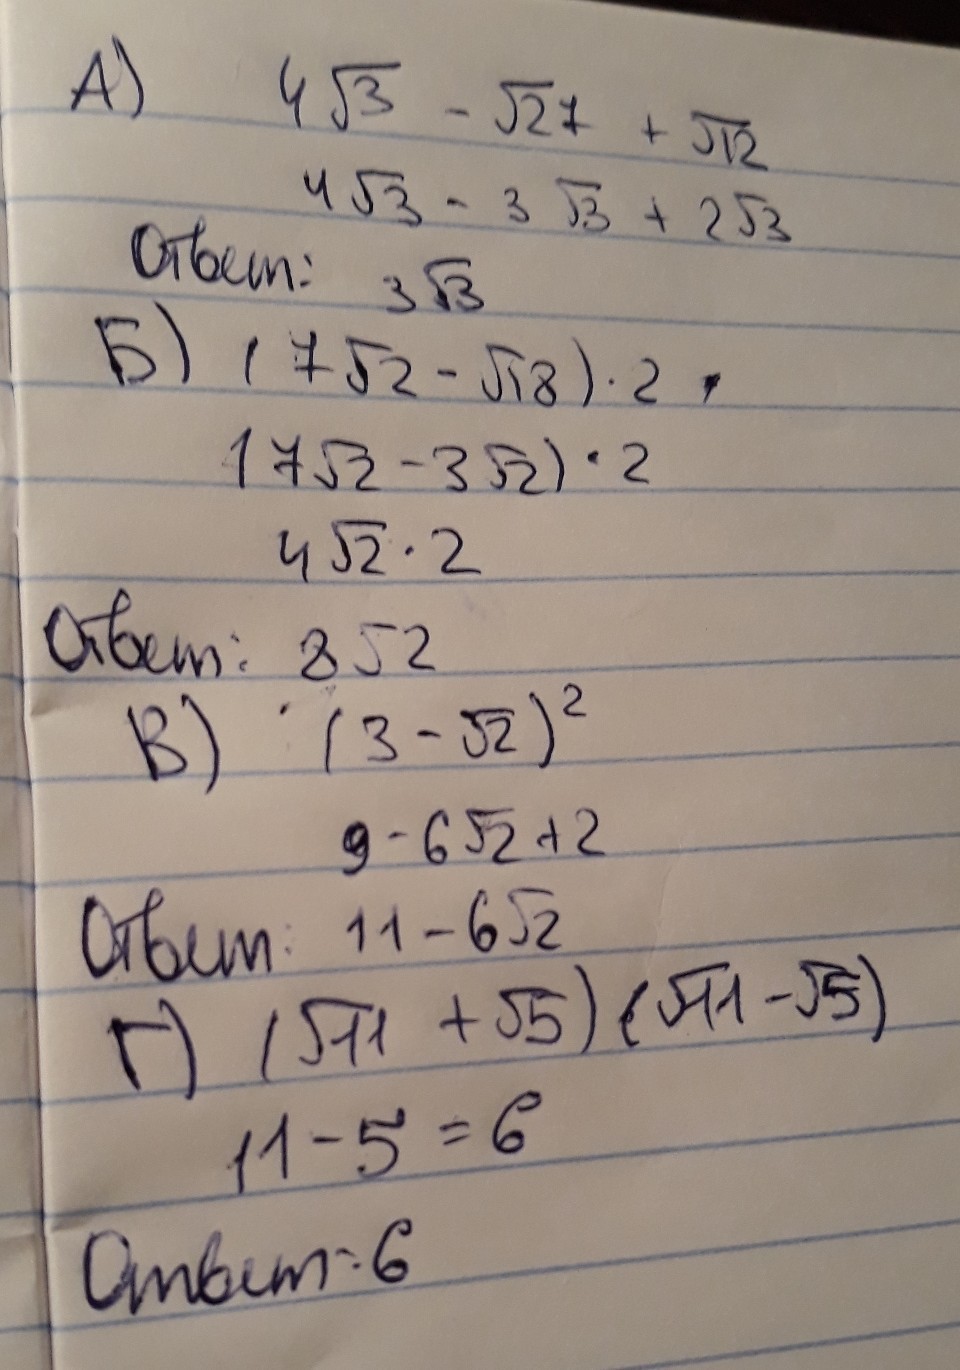 А) 4√3 - √27 + √12
4√3 - 3√3 + 2√3
Ответ: 3√3
Б) (7√2 - √18) · 2
(7√2 - 3√2) · 2
4√2 · 2
Ответ: 8√2
В) (3 - √2)²
9 - 6√2 + 2
Ответ: 11 - 6√2
Г) (√11 + √5) (√11 - √5)
11 - 5 = 6
Ответ: 6